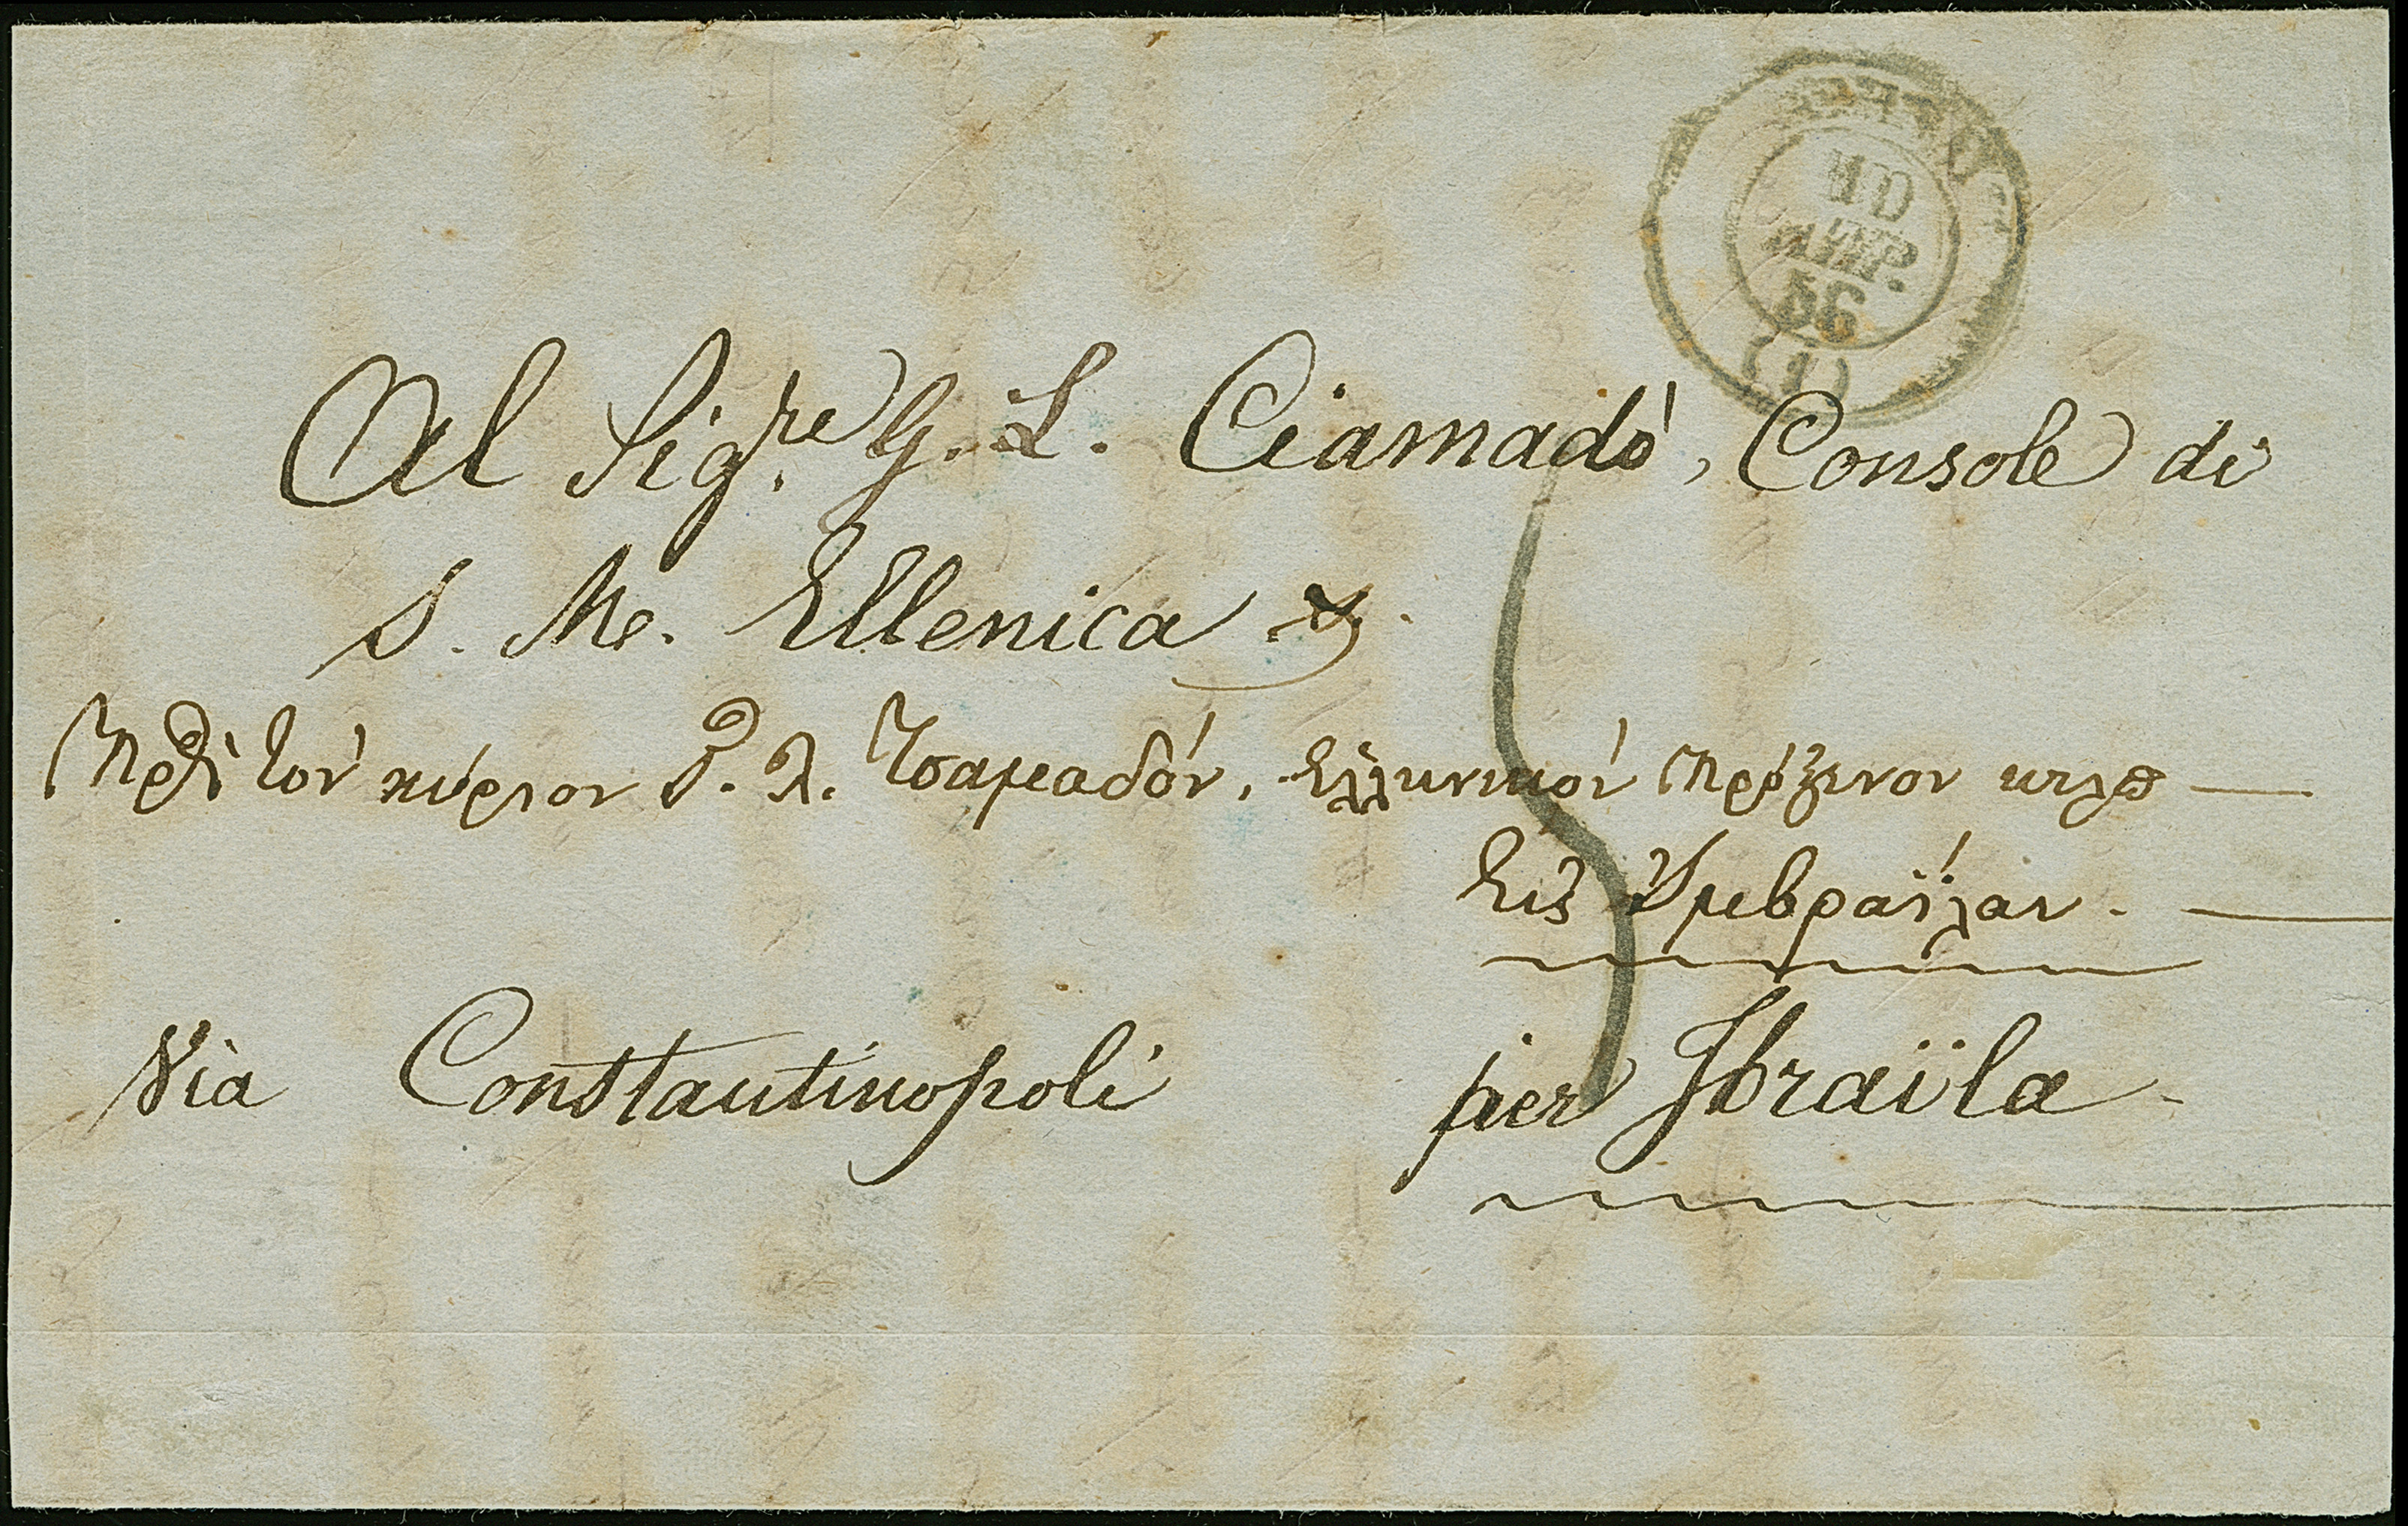 10
ΑΠΡ.
56
(1)
Al Sigre. G. L. Ciamadò, Console di
S. M. Ellenica
Πρὸς τὸν κύριον Γ. Λ. Τσαμαδόν, Ἑλληνικὸν Πρόξενον κτλπ
Εἰς Ἰμβραΐλαν.
Via Constantinopoli
per Ibraïla